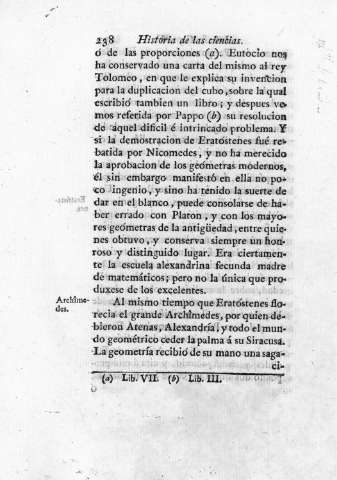 238 Historia de las ciencias.
ó de las proporciones (a). Eutocio nos
ha conservado una carta del mismo al rey
Tolomeo, en que le explica su invencion
para la duplicacion del cubo, sobre la qual
escribió tambien un libro; y despues ve-
mos referida por Pappo (b) su resolucion
de aquel dificil é intrincado problema. Y
si la demostracion de Eratóstenes fué re-
batida por Nicomedes, y no ha merecido
la aprobacion de los geómetras modernos,
él sin embargo manifestó en ella no po-
co ingenio, y sino ha tenido la suerte de
dar en el blanco, puede consolarse de ha-
ber errado con Platon, y con los mayo-
res geómetras de la antigüedad, entre quie-
nes obtuvo, y conserva siempre un hon-
roso y distinguido lugar. Era ciertamen-
te la escuela alexandrina fecunda madre
de matemáticos; pero no la única que pro-
duxese de los excelentes.
Archîme-
des.
Al mismo tiempo que Eratóstenes flo-
recia el grande Archîmedes, por quien de-
bieron Atenas, Alexandría, y todo el mun-
do geométrico ceder la palma á su Siracusa.
La geometría recibió de su mano una saga-
ci-
(a) Lib. VII. (b) Lib. III.